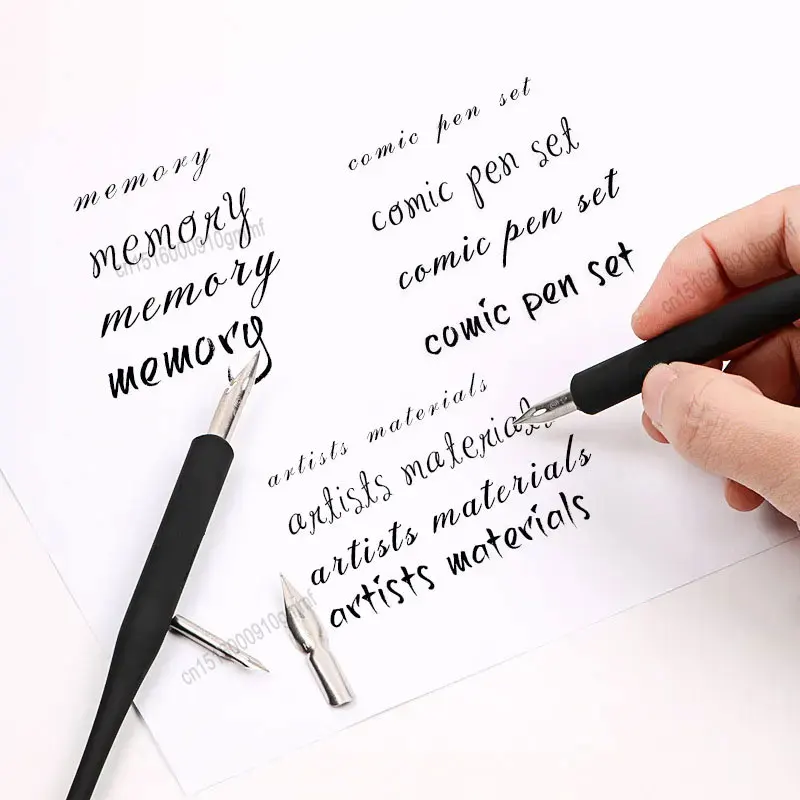 memory
memory
memory
memory
comic pen set
comic pen set
comic pen set
comic pen set
artists materials
artists materials
artists materials
artists materials
cn1516000910gmmf
cn1516000910gmmf